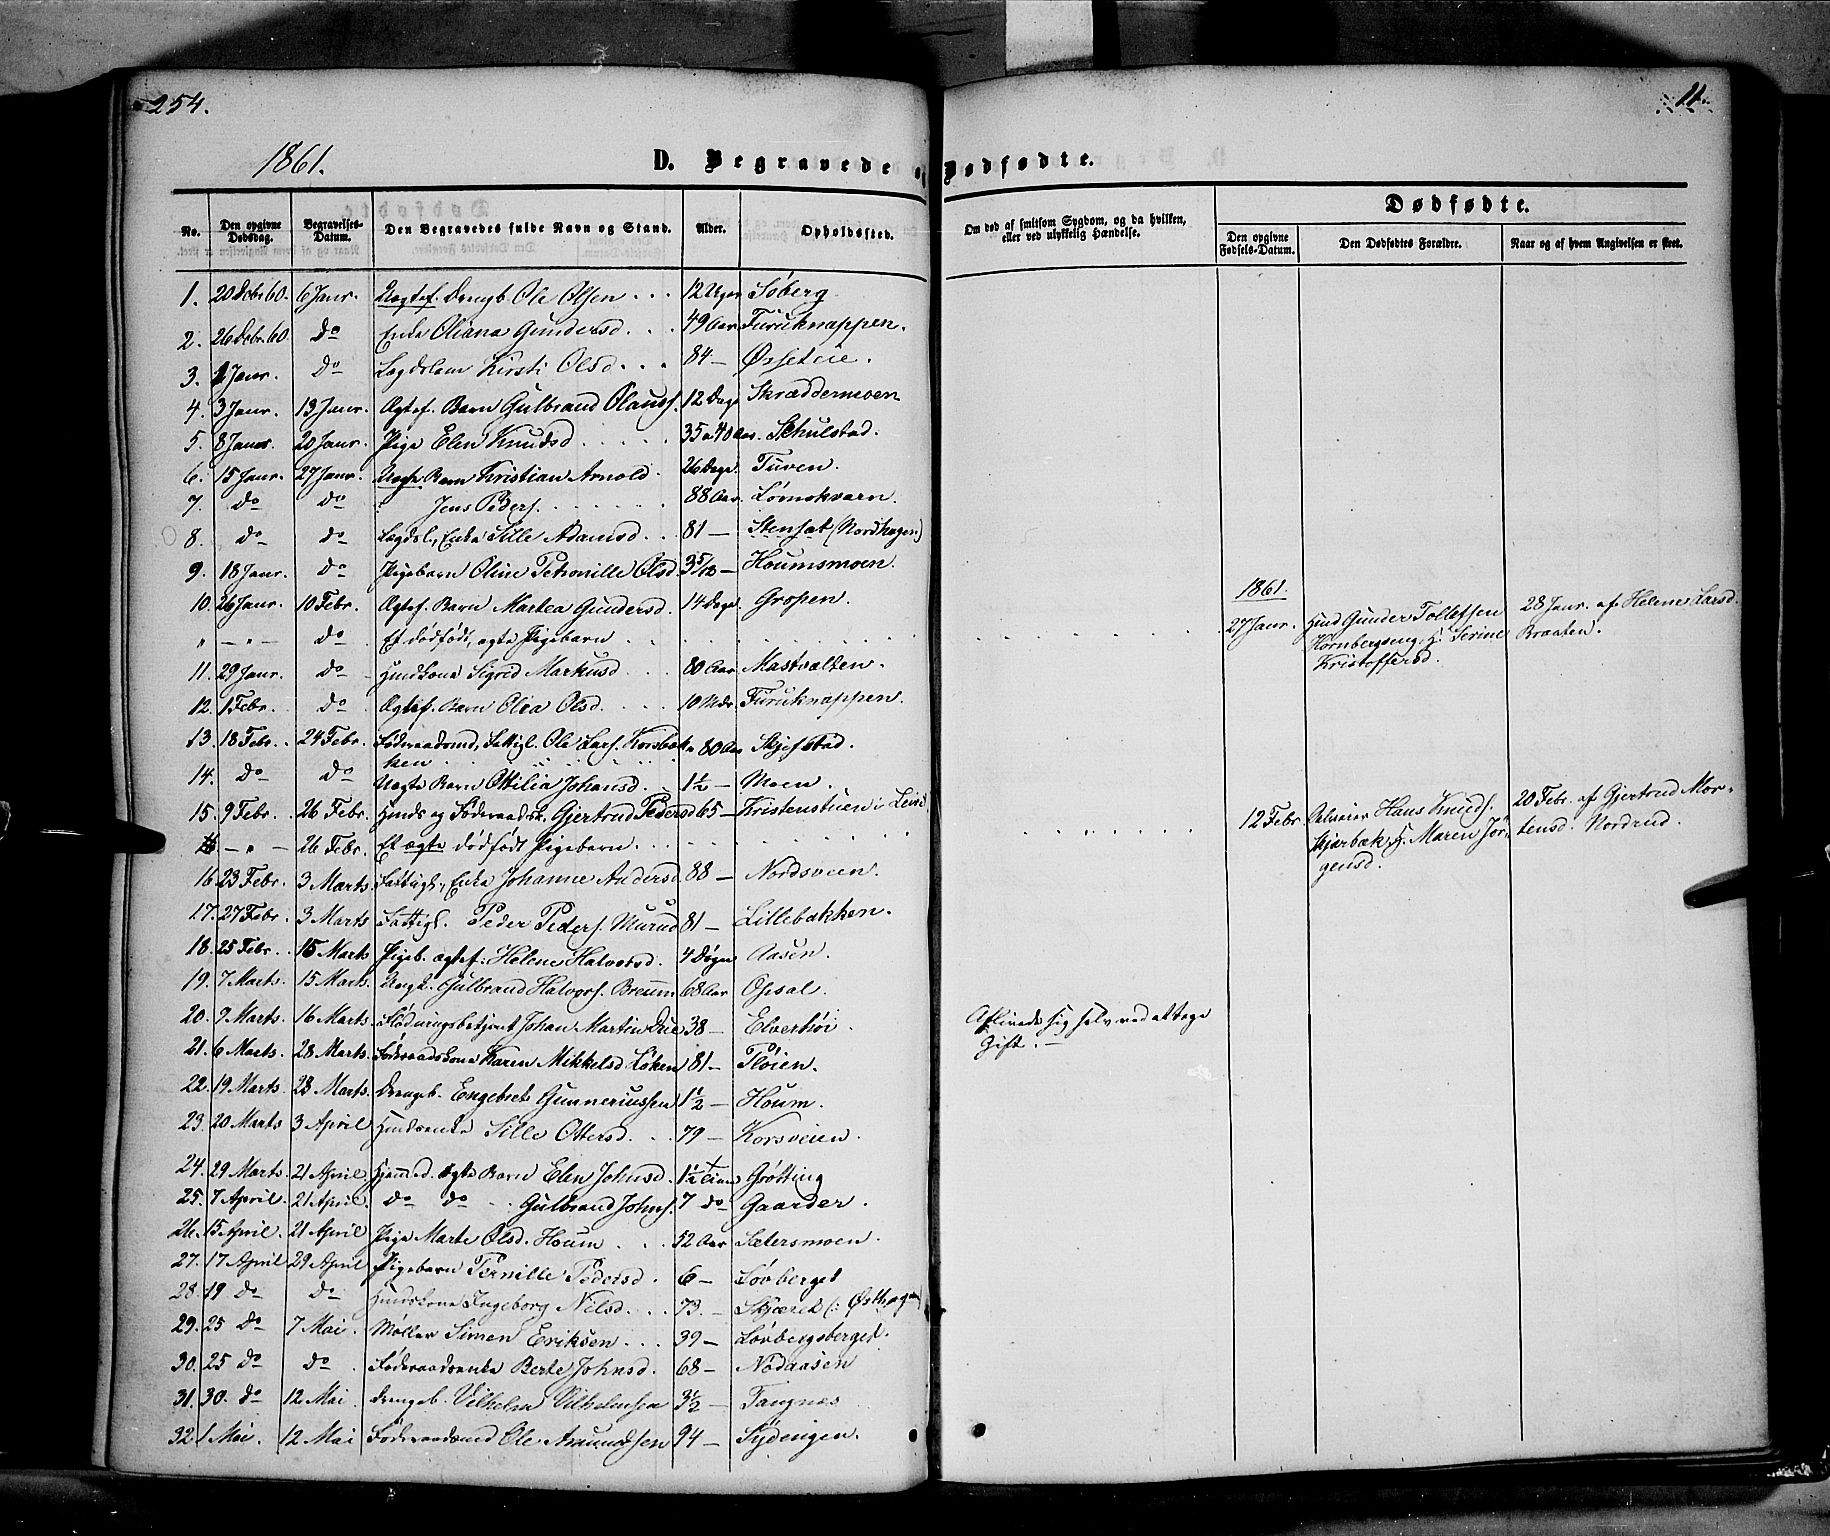 254.
11.
1861.
D. Begravede og Dødfødte.
No.
Den opgivne Dødsdag.
Begravelses-Datum.
Den Begravedes fulde Navn og Stand.
Alder.
Opholdssted.
Om død af smitsom Sygdom, og da hvilken, eller ved ulykkelig Hændelse.
Dødfødte.
Den opgivne Fødsels-Datum.
Den Dødfødtes Forældre.
Naar og af hvem Angivelsen er skeet.
1. 20 Debr 60. 6 Janr. Uægtef. Drengb. Ole Olsen 12 Uger Söberg
2. 26 Debr. 60 Do Enke Oliana Gundersd. 49 Aar Furuknappen.
3. 2 Janr. Do Lægdslem Kirsti Olsd. 84 — Øsseteie.
4. 3 Janr. 13 Janr. Ægtef. Barn Gulbrand Olauss. 12 Dage Skræddermoen
5. 8 Janr. 20 Janr. Pige Elen Knudsd 35 a 40 Aar. Schulstad.
6. 15 Janr. 27 Janr. Uægte Barn Kristian Arnold 26 Dage. Tuven.
7. Do Do Jens Peders. 88 Aar. Lömokvarn.
8. Do Do Lægdsl., Enke Sille Adamsd 81 — Stensæt (Nordhagen)
9. 18 Janr. Do Pigebarn Oline Petronille Olsd 3 5/12 — Houmsmoen.
10. 26 Janr. 10 Febr. Ægtef. Barn Martea Gundersd. 14 Dage. Gropen.
" — " — Do Et dödfödt, ægte Pigebarn 1861. 27 Janr. Hmd Gunder Tollefsen 28 Janr. af Helene Larsd.
Kornbergseng, H. Serine Braaten.
Kristoffersd.
11. 29 Janr. Do Hmdskone Sigrid Markusd 80 Aar. Mastvælten.
12. 1 Febr. Do Ægtef. Barn Olea Olsd. 10 Mdr. Furuknappen.
13. 18 Febr. 24 Febr. Föderaadsmd, Fattigl. Ole Lars. Korsbak- 80 Aar Skjefstad.
ken
14. Do Do Uægte Barn Ottilia Johansd. 1½ — Moen.
15. 9 Febr. 26 Febr. Hmds og Föderaadsk. Gjertrud Pedersd 65 — Kristenstuen
— " — 26 Febr. Et ægte dödfödt Pigebarn. 12 Febr. Hans Knuds. 20 Febr. af Gjertrud Mor-
Skjærbæk, H. Maren Jör- tensd. Nordrud.
gensd.
16. 23 Febr. 3 Marts Fattigl., Enke Johanne Andersd 88 — Nordsveen.
17. 27 Febr. 3 Marts Fattigl. Peder Peders. Murud 81 — Lillebakken.
18. 25 Febr. 15 Marts Pigeb. ægtef. Helene Halvorsd. 4 Döger Aasen.
19. 7 Marts. 15 Marts. Ungk. Gulbrand Halvors. Breum 68 Aar Opsal.
20. 9 Marts. 16 Marts. Flödningsbetjent Johan Martin Due 38 — Elverhöi. Aflivede sig selv ved at tage
Gift. —
21. 6 Marts. 28 Marts. Föderaadskone Karen Mikkelsd Löken 81 — Flöien.
22. 19 Marts. 28 Marts. Drengeb. Engebret Gunneriussen 1½ — Houm.
23. 20 Marts 3 April Hmdsenke Sille Ottersd. 79 — Korsveien.
24. 29 Marts. 21 April Hjemmed. ægte Barn Elen Johnsd. 1½ Time Grötting
25. 7 April. 21 April. Do Do Gulbrand Johns. 7 Do Gaarder.
26. 15 April. 21 April Pige Marte Olsd. Houm 52 Aar Sætersmoen.
27. 17 April 29 April Pigebarn Pernille Pedersd. 6 — Lövberget
28. 19 Do Do Hmdskone Ingeborg Nilsd. 73. — Skjæret (: Østhagen)
29. 25 Do 7 Mai. Møller Simen Eriksen 39 — Lövbergsberget.
30. 25 Do Do. Föderaadsenke Berte Johnsd. 68 — Nödaasen
31. 30. Do 12 Mai Drengeb. Vilhelm Vilhelmsen 3½ — Tangnes
32. 1 Mai. 12 Mai Föderaadsmd Ole Amundsen 94 — Sydengen.